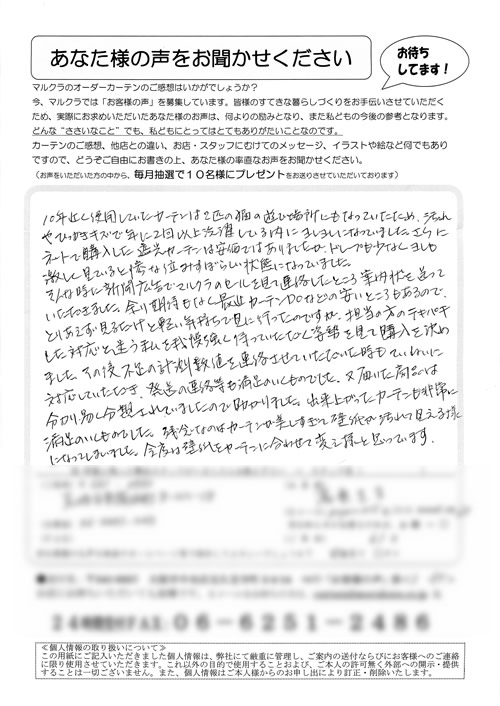 あなた様の声をお聞かせください
お待ち
してます！
マルクラのオーダーカーテンのご感想はいかがでしょうか？
今、マルクラでは「お客様の声」を募集しています。皆様のすてきな暮らしづくりをお手伝いさせていただく
ため、実際にお求めいただいたあなた様のお声は、何よりの励みとなり、また私どもの今後の参考となります。
どんな“ささいなこと”でも、私どもにとってはとてもありがたいことなのです。
カーテンのご感想、他店との違い、お店・スタッフにむけてのメッセージ、イラストや絵など何でもあり
ですので、どうぞご自由にお書きの上、あなた様の率直なお声をお聞かせください。
（お声をいただいた方の中から、毎月抽選で１０名様にプレゼントをお送りさせていただいております）
10年近く使用していたカーテンは2匹の猫の遊び場所にもなっていたため、汚れ
やひっかきキズで年に2回以上洗濯している内にヨレヨレになっていました。さらに
ネットで購入した遮光カーテンは安価ではありましたが、ドレープも少なくヨレも
激しく見ていると
みすぼらしい状態になっていました。
そんな時に新聞広告でマルクラのセールを見て連絡したところ案内状を送って
いただきました。余り期待もなく最近カーテンDOなどの安いところもあるので、
とりあえず見るだけと軽い気持ちで見に行ったのですが、担当の方のテキパキ
した対応と迷うまいを我慢強く待っていただく姿勢を見て購入を決め
ました。その後不足の計測数値を連絡させていただいた時もていねいに
対応していただき、発送の連絡等も満足のいくものでした。又届いた商品は
分り易く分類されていましたので助かりました。出来上がったカーテンも非常に
満足のいくものでした。残念なのはカーテンが美しすぎて壁紙が汚れて見える様
になってしまいました。今度は壁紙をカーテンに合わせて変え様と思っています。
24時間受付FAX：06-6251-2486
≪個人情報の取り扱いについて≫
この用紙にご記入いただきました個人情報は、弊社にて厳重に管理し、ご案内の送付ならびにお客様へのご連絡
に限り使用させていただきます。これ以外の目的で使用することおよび、ご本人の許可無く外部への開示・提供
することは一切ございません。また、個人情報はご本人様からのお申し出により訂正・削除いたします。